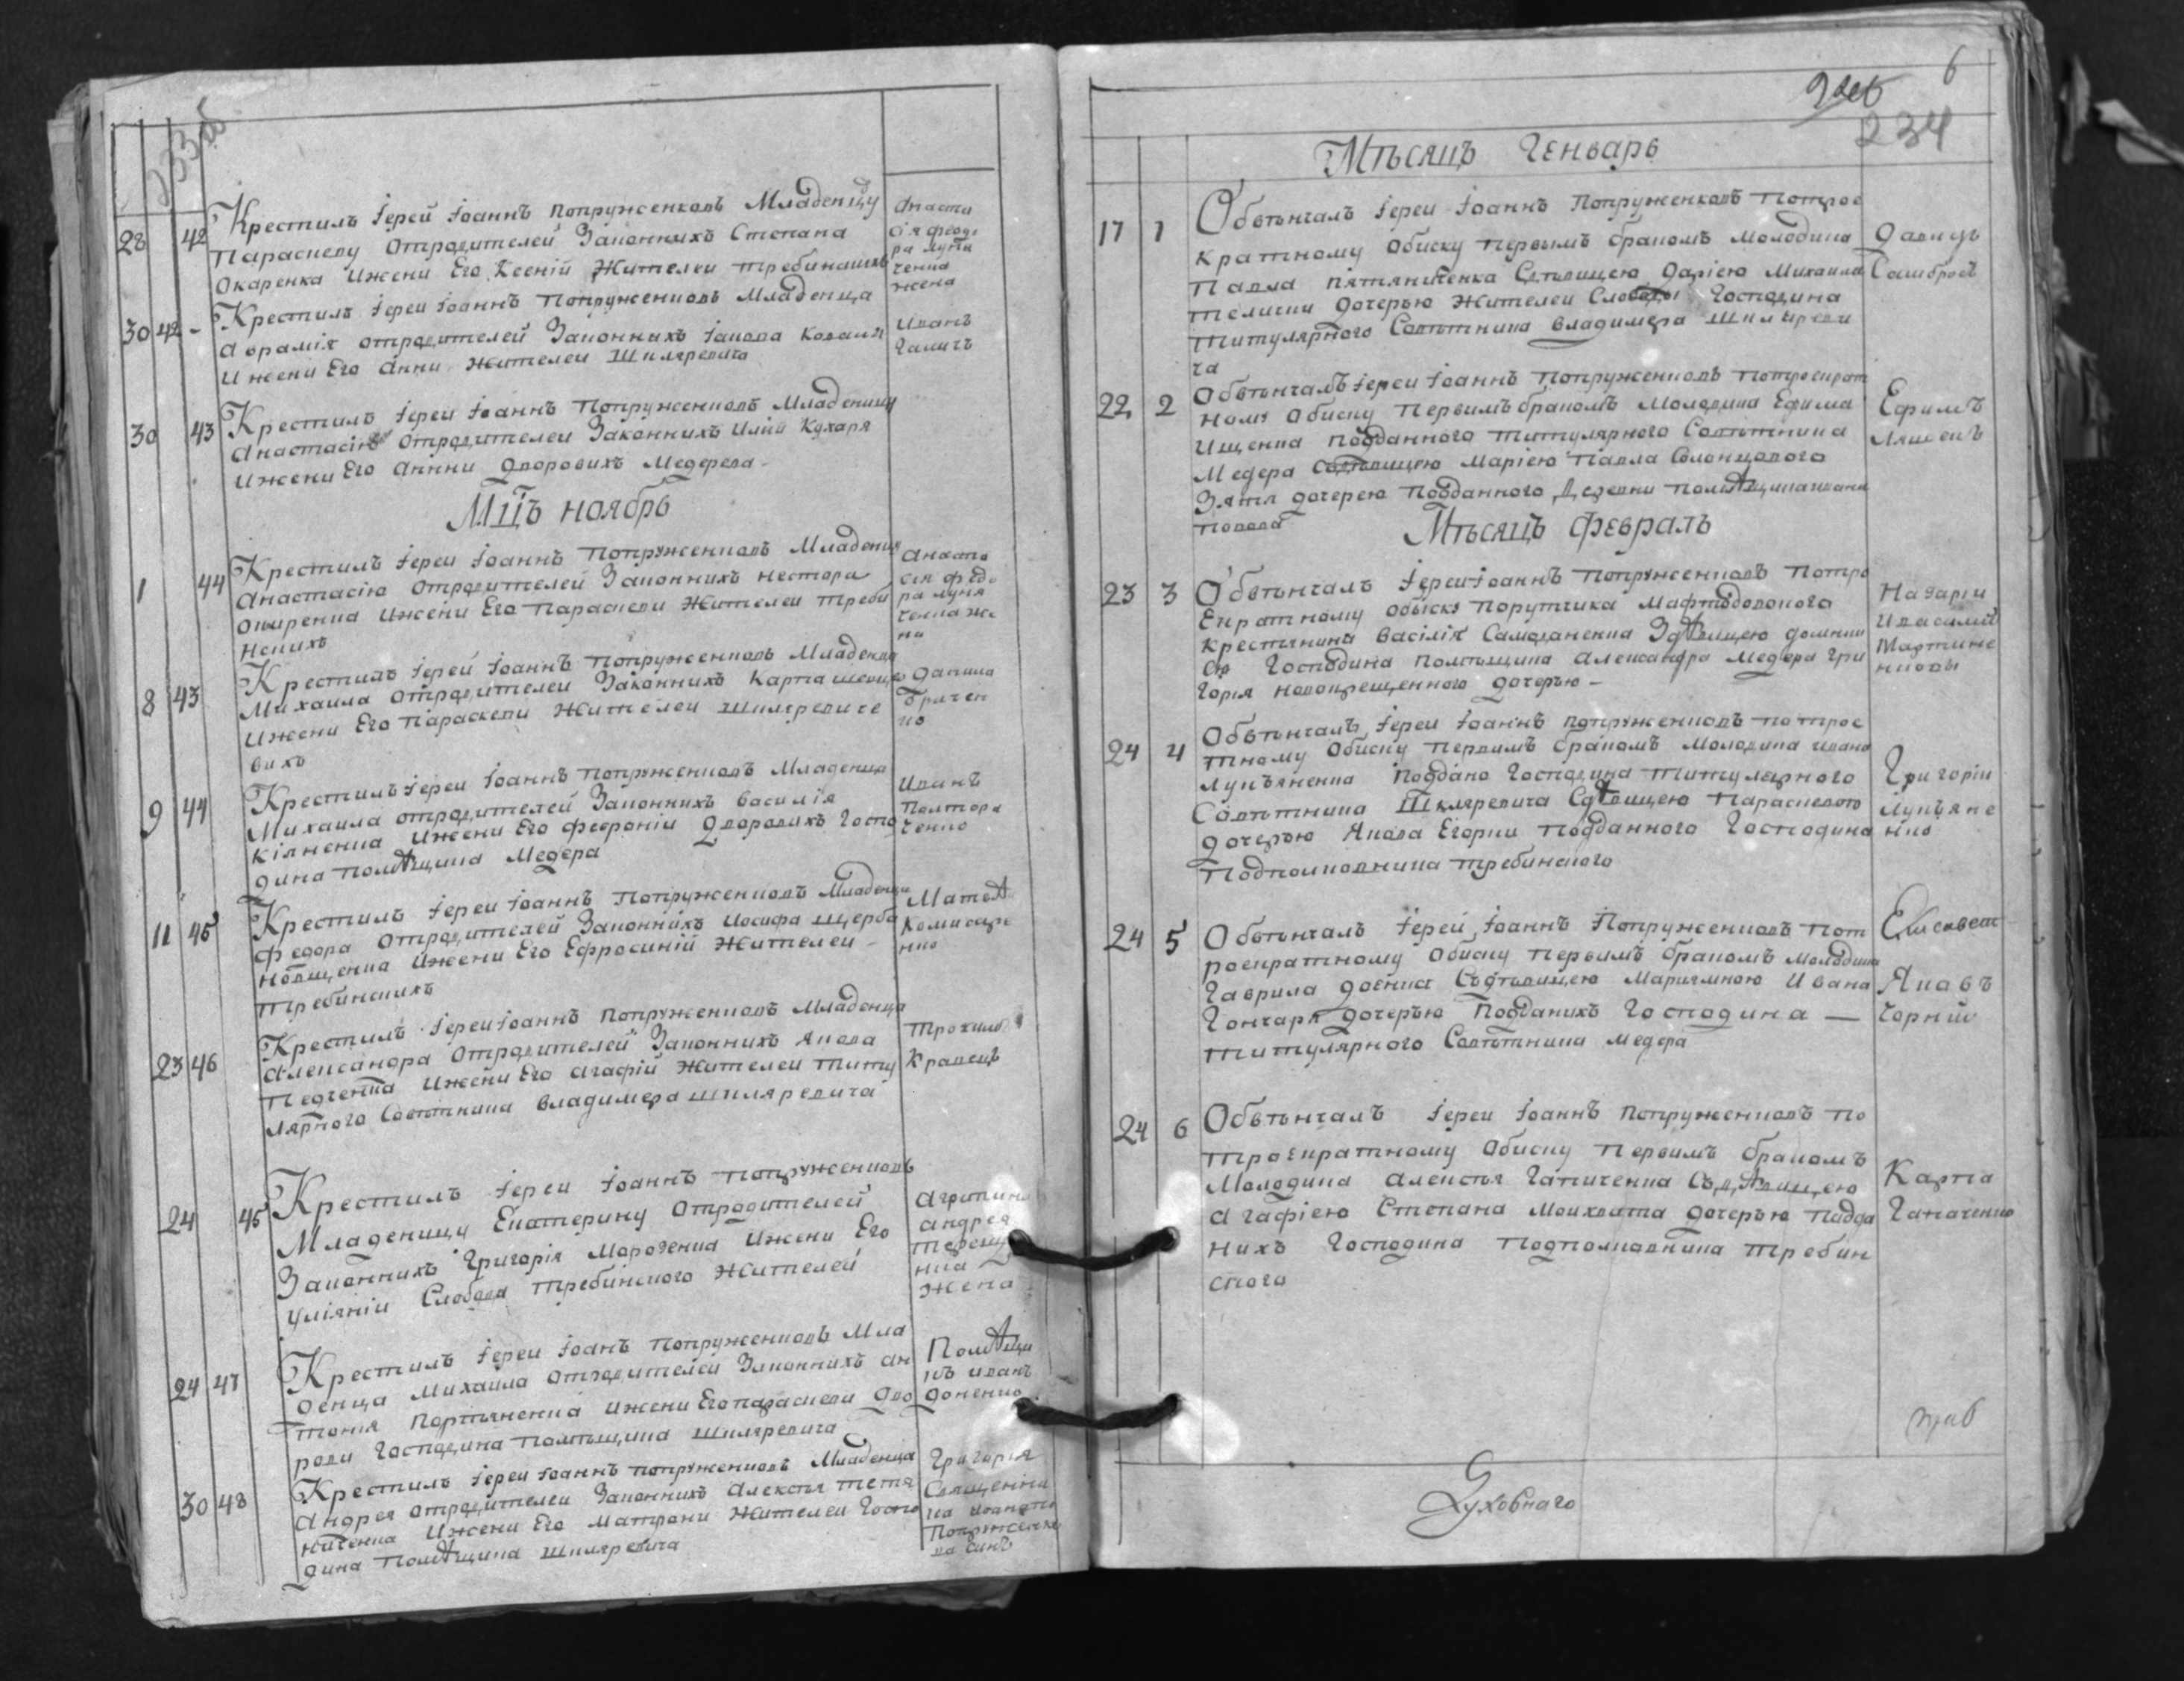 233 об
28 42 Крестилъ Іерей Іоаннъ Попруженковъ Младеницу
Параскеву Отродителей Законнихъ Степана
Окаренка Ижени Его Ксеній Жителей Требинскихъ
Анаста
сія Феодо
ра Луня
ченка
жена
30 42 - Крестилъ Іереи Іоаннъ Попруженковъ Младенца
Аврамія отродителей Законнихъ Іакова Коваля
Ижени Его Анни Жителеи Шкляревича
Иванъ
Галичъ
30 43 Крестилъ Іереи Іоаннъ Попруженковъ Младеницу
Анастасію Отродителеи Законнихъ Иліи Кухаря
Ижени Его Аннни Дворовихъ Медерева -
Мцъ Ноябрь
1 44 Крестилъ Іереи Іоаннъ Попруженковъ Младениц
Анастасію Отродителей Законнихъ Нестора
Ошаренка Ижени Его Параскеви Жителеи Треби
нскихъ
Анаста
сія Федо
ра Луня
ченка же
на
8 43 Крестилъ Іерей Іоаннъ Попруженковъ Младенца
Михаила Отродителеи Законнихъ Карпа
Ижени Его Параскеви Жителеи Шкляревиче
вихъ
Данила
но
9 44 Крестилъ Іереи Іоаннъ Попруженковъ Младенца
Михаила отродителей Законнихъ Василія
Кіяненка Ижени Его Февроніи Дворовихъ Госпо
дина Помѣщика Медера
Иванъ
Полтора
ченко
11 45 Крестилъ Іереи Іоаннъ Попруженковъ Младенца
Федора Отродителей Законнихъ Иосифа Щерба
Ижени Его Ефросиній Жителеи -
Требинскихъ
Матѳѣ
Комисаре
нко
23 46 Крестилъ Іереи Іоаннъ Попруженковъ Младенца
Александра Отродителей Законнихъ Якова
Педченка Ижени Его Агафій Жителеи Титу
лярного Совѣтника Владимера Шкляревича
Трохимъ
Кравецъ
24 45 Крестилъ Іереи Іоаннъ Попруженковъ
Младеницу Екатерину Отродителей
Законнихъ Григорія Мороченка Ижени Его
Уліяніи Слободи Требинского Жителей
Агрипина
Андрея
Терещ
нка
Жена
24 47 Крестилъ Іереи Іоанъ Попруженковъ Мла
денца Михаила Отродителей Законнихъ Ан
тонія Портянника Ижени Его Параскеви Дво
рови Господина Помѣщика Шкляревича
Помѣщи
къ Иванъ
Доненко
30 48 Крестилъ Іереи Іоаннъ Попруженковъ Младенца
Андрея Отродителеи Законнихъ Алексѣя Тетя
ниченка Ижени Его Матрони Жителеи Госпо
дина Помѣщика Шкляревича
Григорія
Священни
ка Иоанна
Попруженко
ва Синъ
6
234
Мѣсяцъ Генварь
17 1 Обвѣнчалъ Іереи Іоаннъ Попруженковъ Потрое
кратному Обиску Первымъ бракомъ Молодика
Павла Пятяниченка Сдѣвицею Дарією Михаила
Телички Дочерью Жителеи Слободы Господина
Титулярного Совѣтника Владимера Шкляреви
ча
Давидъ
Самброс
22 2 Обвѣнчалъ Іереи Іоаннъ Попруженковъ Потроекрат
ному Обиску Первимъ бракомъ Молодика Ефима
Ищенка Подданного Титулярного Совѣтника
Медера Сдѣвицею Марією Павла Солонцового
Зятя Дочерею Подданного Деревни Помѣщика Ивана
Попова
Ефимъ
Ляшенъ
Мѣсяцъ Февраль
23 3 Обвѣнчалъ Іереи Іоаннъ Попруженковъ Потро
екратному Обыску Порутчика Мафтодовокого
Крестянина Василія Самоданенка Здѣвицею Домник
ею Господина Помѣщика Александра Медера Гри
горія Новокрещенного Дочерью -
Назарии
Ивасилий
Мартине
нковы
24 4 Обвѣнчалъ Іереи Іоаннъ Попруженковъ потрое
тному Обиску Первимъ бракомъ Молодика Ивана
Лупъяненка Поддано Господина Титулярного
Совѣтника Шкляревича Сдѣвицею Параскевою
Дочерью Якова Егорки Подданного Господина
Подполковника Требинского
Григоріи
Лупъяне
нко
24 5 Обвѣнчалъ Іерей Іоаннъ Попруженковъ Пот
роекратному Обиску Первимъ бракомъ Молодика
Гаврила Доенка Съдѣвицею Мариямною Ивана
Гончаря Дочерью Подданихъ Господина —
Титулярного Совѣтника Медера
Елисавет
Яковъ
Чорній
24 6 Обвѣнчалъ Іереи Іоаннъ Попруженковъ По
Троекратному Обиску Первимъ бракомъ
Молодика Алексѣя Гапиченка Съдѣвицею
Агафією Степана Моихвата Дочерью Подда
нихъ Господина Подполковника Требин
ского
Карпа
Ганаченко
Духовнаго